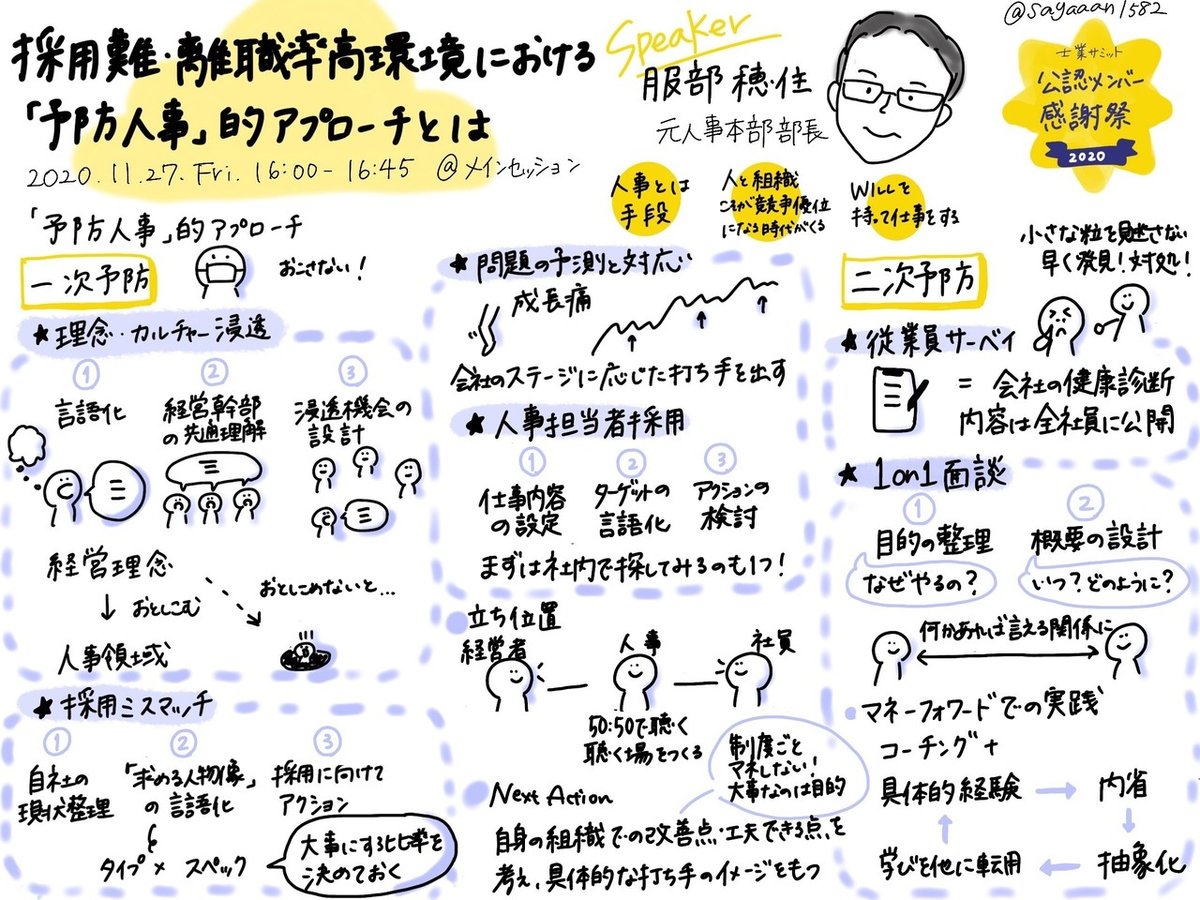 採用難・離職率高環境における
「予防人事」的アプローチとは
2020.11.27.Fri. 16:00-16:45 @メインセッション
Speaker
服部 穂住
元人事本部部長
@sayaaan1582
士業サミット
公認メンバー
感謝祭
2020
人事とは
手段
人と組織
こそが競争優位
になる時代がくる
WILLを
持って仕事をする
「予防人事」的アプローチ
一次予防
おこさない！
★理念・カルチャー浸透
①
言語化
②
経営幹部
の共通理解
③
浸透機会の
設計
経営理念
↓おとしこむ
人事領域
おとしこめないと…
★採用ミスマッチ
①
自社の
現状整理
②
「求める人物像」
の言語化
③
採用に向けて
アクション
タイプ×スペック
大事にする比率を
決めておく
★問題の予測と対応
成長痛
会社のステージに応じた打ち手を出す
★人事担当者採用
①
仕事内容
の設定
②
ターゲットの
言語化
③
アクションの
検討
まずは社内で探してみるのも1つ！
立ち位置
経営者
人事
社員
50:50で聴く
聴く場をつくる
制度ごと
マネしない！
大事なのは目的
Next Action
自身の組織での改善点・工夫できる点を
考え、具体的な打ち手のイメージをもつ
二次予防
小さな粒を見逃さない
早く発見！対処！
★従業員サーベイ
= 会社の健康診断
内容は全社員に公開
★1on1面談
①
目的の整理
なぜやるの？
②
概要の設計
いつ？どのように？
何かあれば言える関係に
マネーフォワードでの実践
コーチング+
具体的経験 → 内省
↑ ↓
学びを他に転用 ← 抽象化